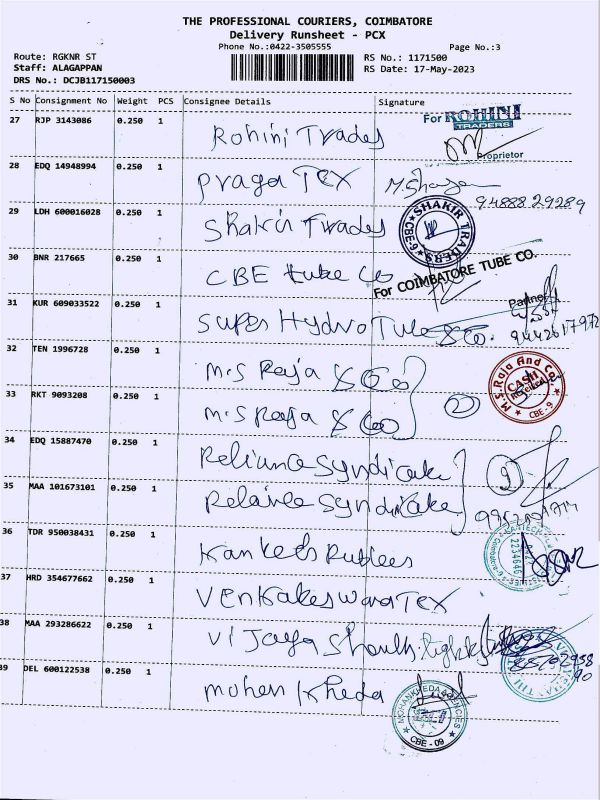 THE PROFESSIONAL COURIERS, COIMBATORE
Delivery Runsheet - PCX
Phone No.:0422-3505555 Page No.:3
Route: RGKNR ST RS No.: 1171500
Staff: ALAGAPPAN RS Date: 17-May-2023
DRS No.: DCJB117150003
S No Consignment No Weight PCS Consignee Details Signature
27 RJP 3143086 0.250 1 Rohini Trades For ROHINI TRADERS
Proprietor
28 EDQ 14948994 0.250 1 Praga TEX
94888 29289
29 LDH 600016028 0.250 1 Shakir Trades SHAKIR TRADERS CBE-9
30 BNR 217665 0.250 1 CBE tube Co For COIMBATORE TUBE CO.
Partner
31 KUR 609033522 0.250 1 Super Hydro Tube & Co. 9442617972
32 TEN 1996728 0.250 1 M.S Raja & Co M.S.Raja And Co. CASH CBE-9
33 RKT 9093208 0.250 1 M.S Raja & Co 2
34 EDQ 15887470 0.250 1 Reliance Syndicate
35 MAA 101673101 0.250 1 Relaince Syndicate
36 TDR 950038431 0.250 1
37 HRD 354677662 0.250 1 Venkateswara TEX
38 MAA 293286622 0.250 1 Vijaya
39 DEL 600122538 0.250 1 Mohan Kheda MOHANKHEDA AGENCIES CBE - 09